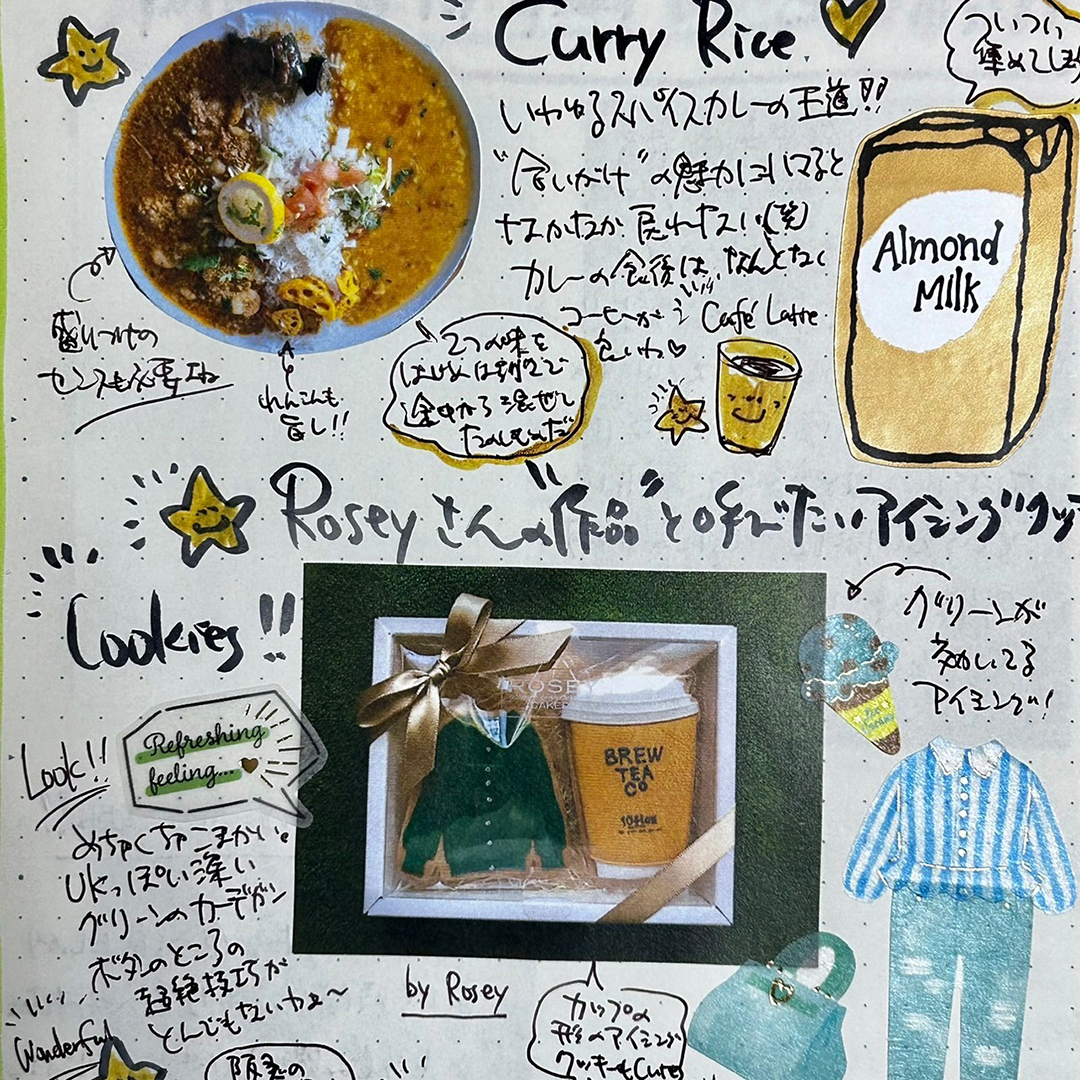 Curry Rice
ついつい
集めてしまう
いわゆるスパイスカレーの王道!!
"合いがけ"の魅力にハマると
なかなか戻れない(笑)
カレーの食後は、なんとなく
コーヒーが Café Latte
合いわ♡
Almond
Milk
盛りつけの
センスも必要ね
れんこんも
旨し!!
2つの味を
はじめは別々で
途中から混ぜて
たのしむんだ
Roseyさんの"作品"と呼びたいアイシングクッ
Cookies!!
グリーンが
効いてる
アイシング!
Refreshing
feeling...
Look!!
ROSEY
BAKER
BREW
TEA
CO
めちゃくちゃこまかい。
UKっぽい深い
グリーンのカーデガン
ボタンのところの
超絶技巧が
とんでもないわよ〜
Wonderful
by Rosey
カップの
形のアイシング
クッキーもCute
阪急の